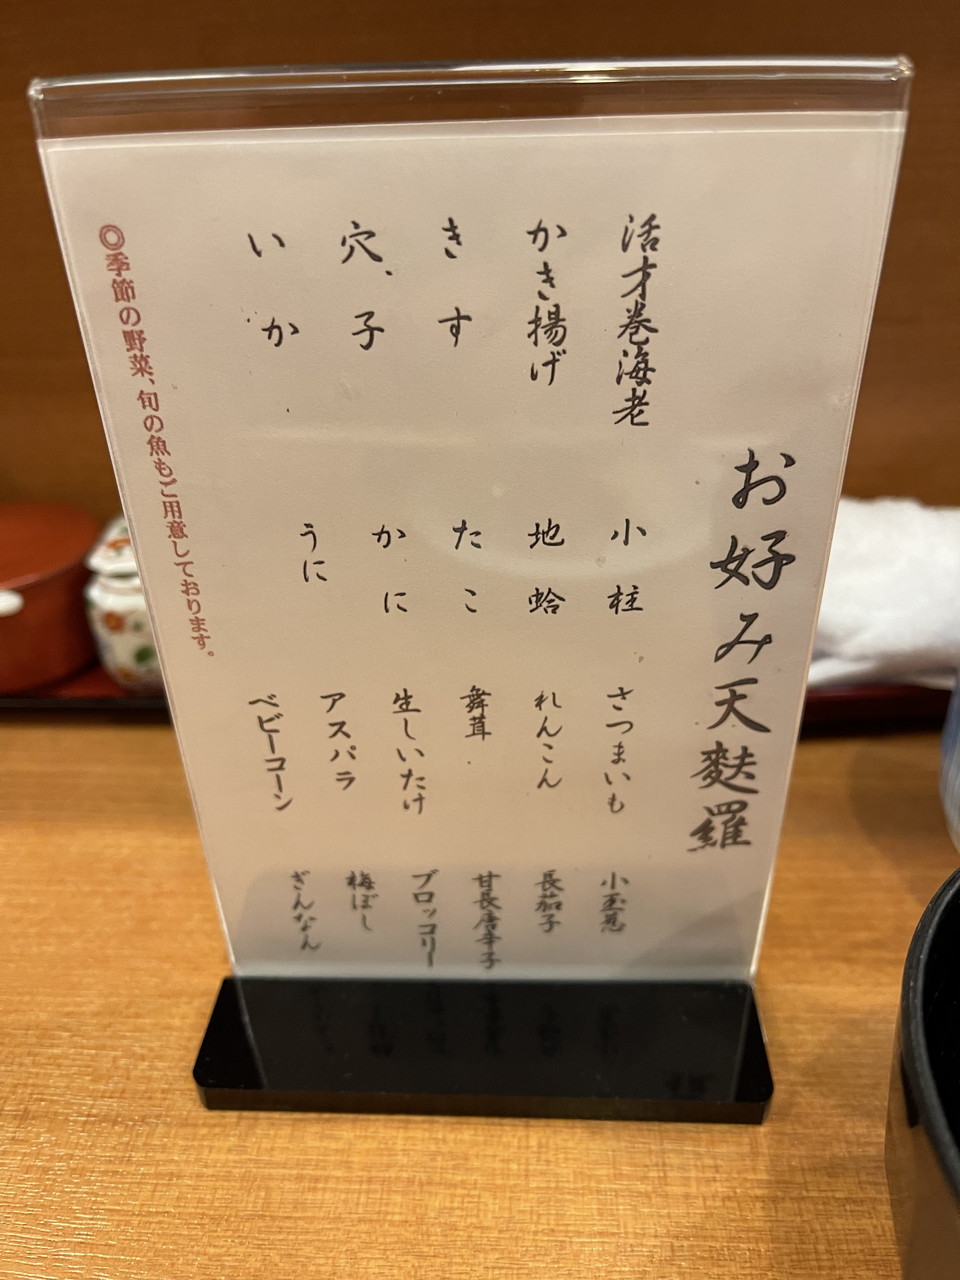 お好み天麩羅
活才巻海老
かき揚げ
きす
穴子
いか
小柱
地蛤
たこ
かに
うに
さつまいも
れんこん
舞茸
生しいたけ
アスパラ
ベビーコーン
小玉葱
長茄子
甘長唐辛子
ブロッコリー
梅ぼし
ぎんなん
◎季節の野菜、旬の魚もご用意しております。